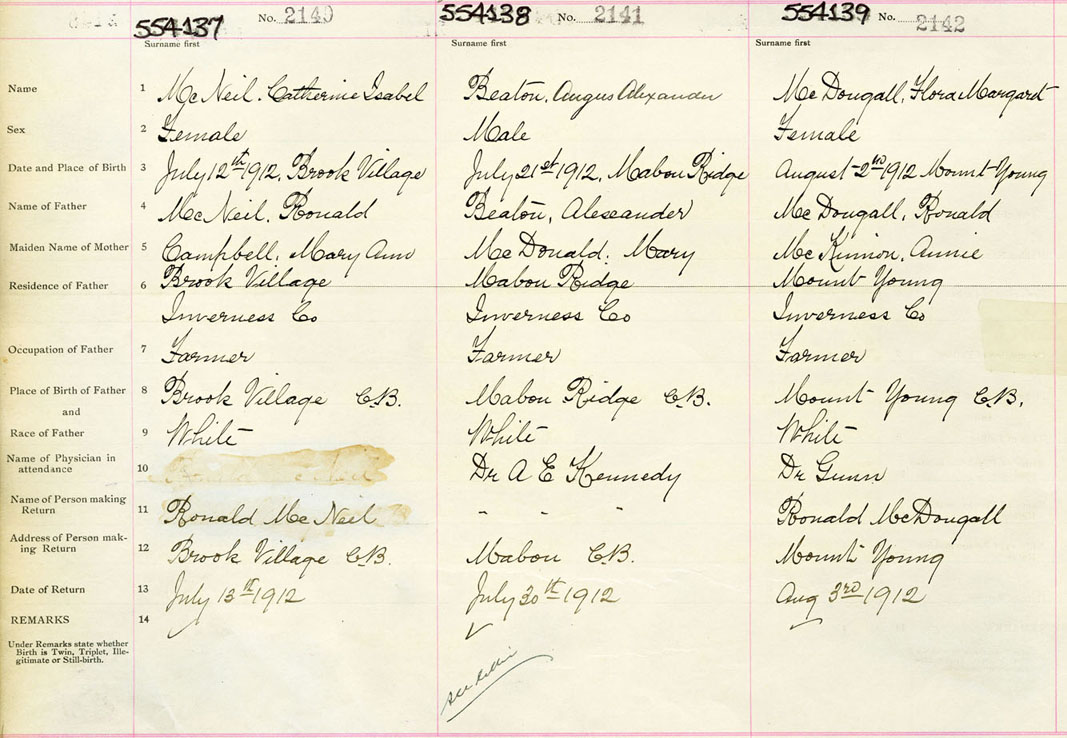 554137 No. 2140 554138 No. 2141 554139 No. 2142
Surname first Surname first Surname first
Name 1 McNeil. Catherine Isabel Beaton, Angus Alexander McDougall, Flora Margaret
Sex 2 Female Male Female
Date and Place of Birth 3 July 12th 1912, Brook Village July 21st 1912, Mabou Ridge August 2nd 1912 Mount Young
Name of Father 4 McNeil, Ronald Beaton, Alexander McDougall, Ronald
Maiden Name of Mother 5 Campbell, Mary Ann McDonald, Mary McKinnon, Annie
Residence of Father 6 Brook Village Mabou Ridge Mount Young
Inverness Co Inverness Co Inverness Co
Occupation of Father 7 Farmer Farmer Farmer
Place of Birth of Father 8 Brook Village C.B. Mabou Ridge C.B. Mount Young C.B.
and
Race of Father 9 White White White
Name of Physician in
attendance 10 Dr A E Kennedy Dr Gunn
Name of Person making
Return 11 Ronald McNeil " " " Ronald McDougall
Address of Person mak-
ing Return 12 Brook Village C.B. Mabou C.B. Mount Young
Date of Return 13 July 13th 1912 July 30th 1912 Aug 3rd 1912
REMARKS 14
Under Remarks state whether
Birth is Twin, Triplet, Ille-
gitimate or Still-birth.